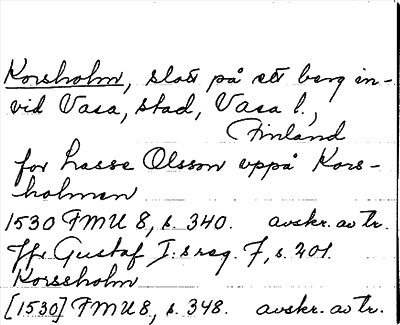 Korsholm, slott på ett berg in-
vid Vasa, stad, Vasa l.,
Finland
for Lasse Olsson vppå Kors-
holmen
1530 FMU 8, s. 340. avskr. av tr.
Jfr Gustaf I:s reg. 7, s. 201.
Korssholm
[1530] FMU 8, s. 348. avskr. av tr.